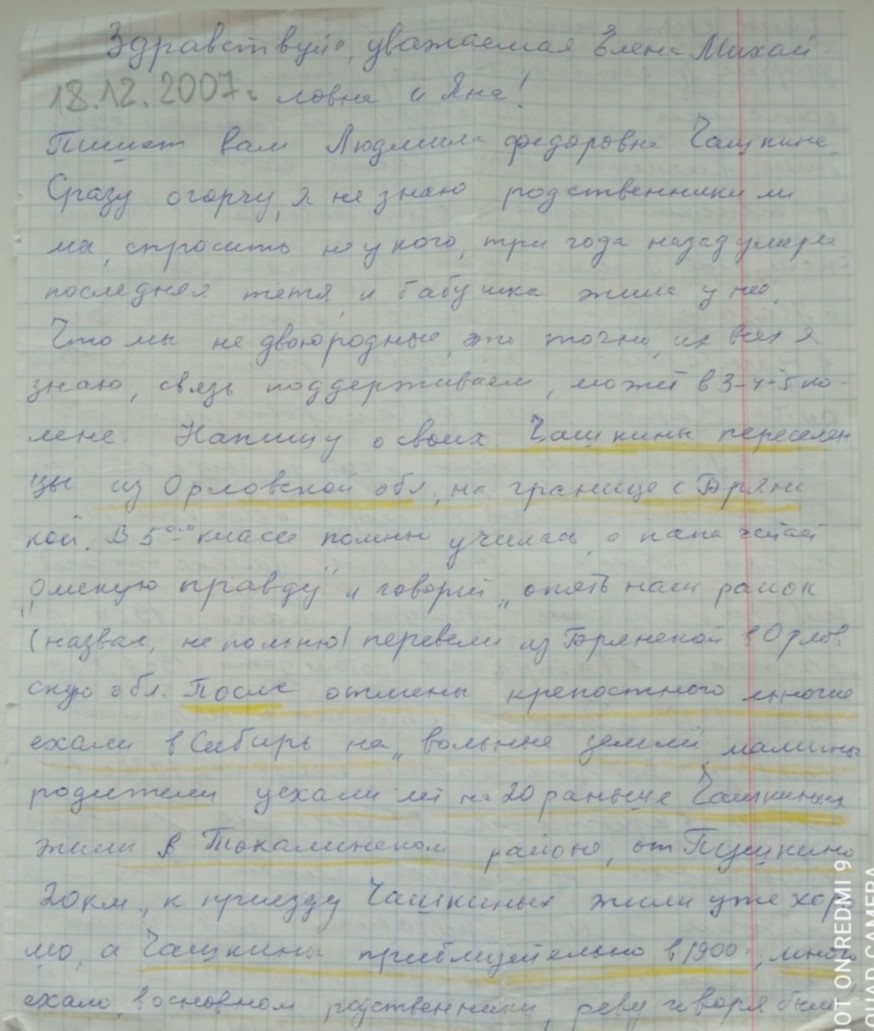 Здравствуйте, уважаемая Елена Михай
18.12.2007г ловна и Яна!
Пишет вам Людмила Федоровна Чашкина.
Сразу огорчу, я не знаю родственники ли
мы, спросить не у кого, три года назад умерла
последняя тетя и бабушка жила у неё.
Что мы не двоюродные, это точно, их всех я
знаю, связь поддерживаем, может в 3-4-5 ко-
лене. Напишу о своих. Чашкины переселен
цы из Орловской обл, на границе с Брянс
кой. В 5ом классе помню училась, а папа читает
„Омскую правду" и говорит „опять наш район
(назвал, не помню) перевели из Брянской в Орлов
скую обл. После отмены крепостного многие
ехали в Сибирь на „вольные земли", мамины
родители уехали лет на 20 раньше Чашкиных
жили в Тюкалинском районе, от Пушкино
20 км, к приезду Чашкиных жили уже хор
шо, а Чашкины приблизительно в 1900г, много
ехало, в основном родственники, реву говоря было
SHOT ON REDMI 9
QUAD CAMERA